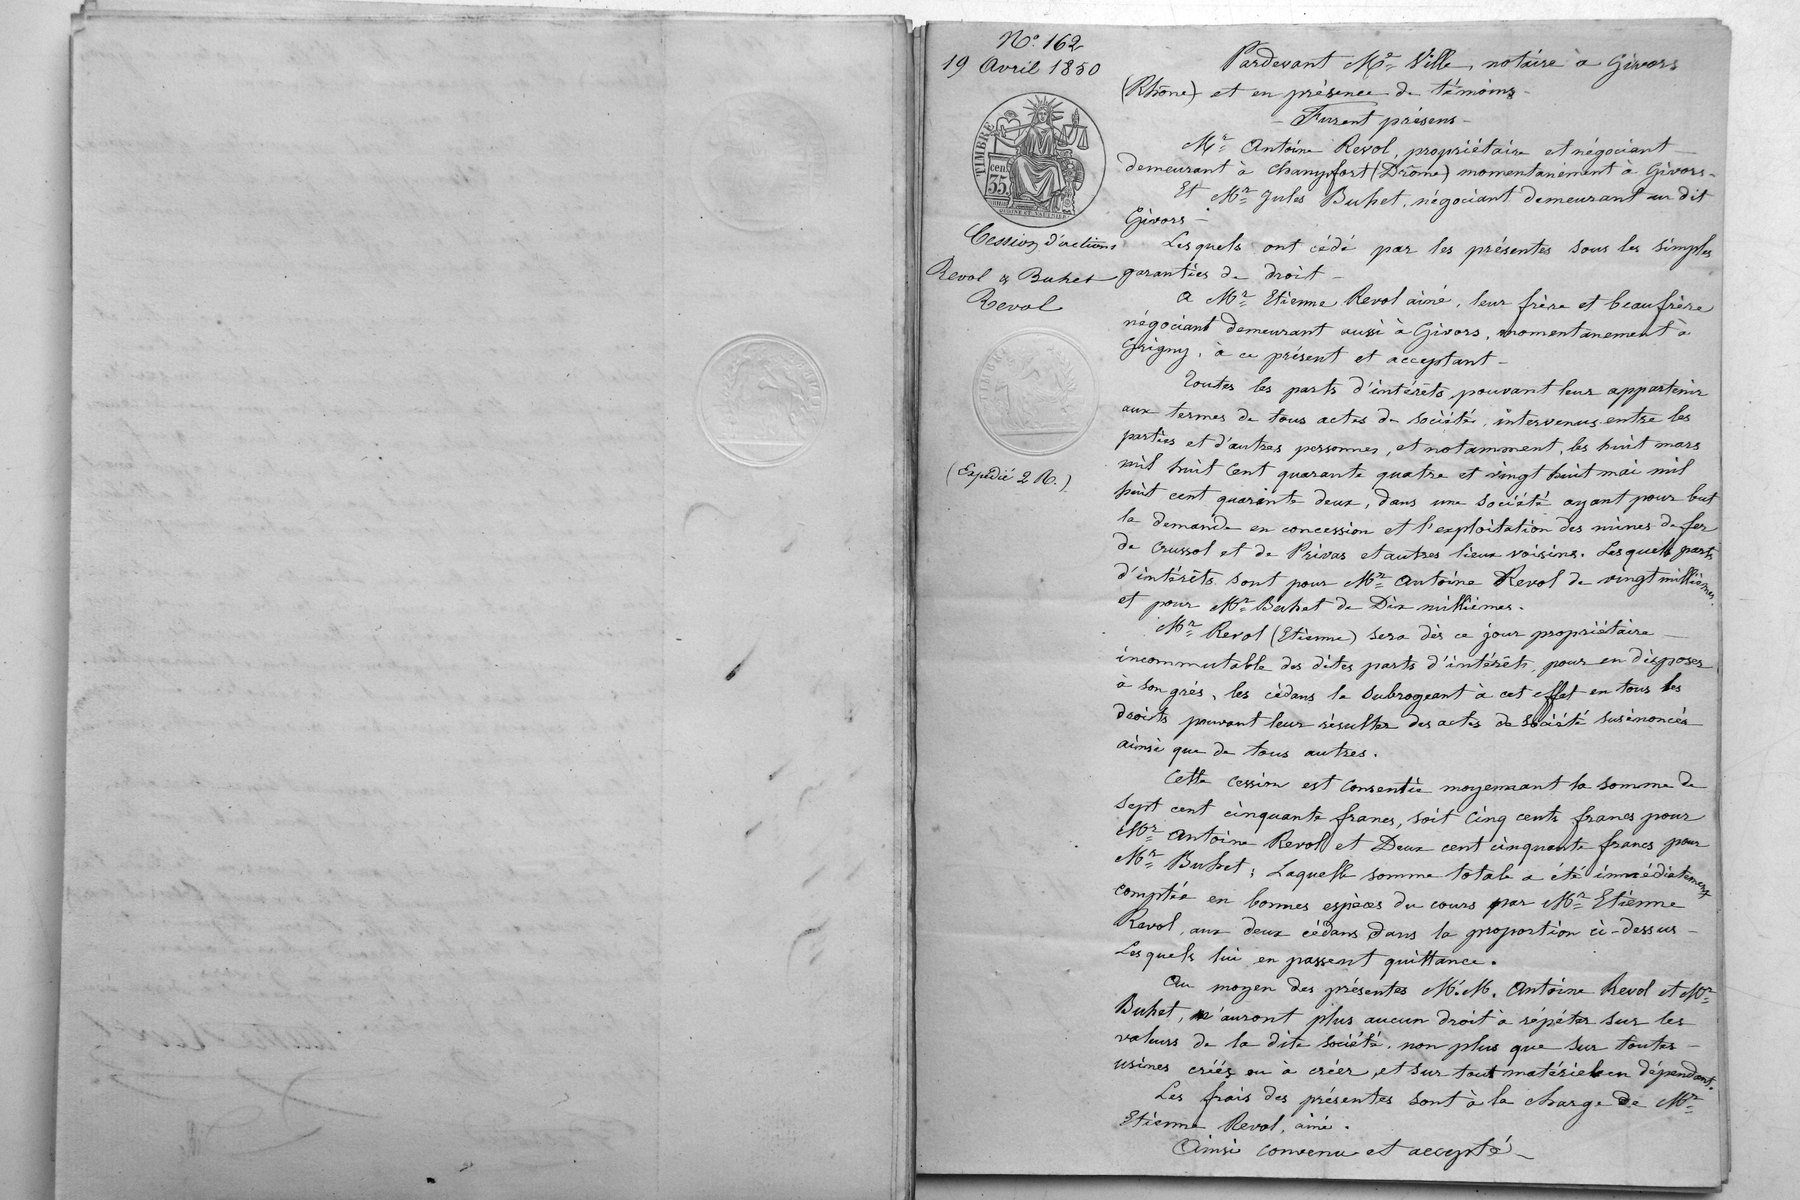 N° 162
19 Avril 1850
TIMBRE
cen.
35
Cession d'actions
Revol & Buhet
Revol
(Expédié 2 R.)
Pardevant Me Ville, notaire à Givors
(Rhône) et en présence de témoins -
- Furent présens -
Mr Antoine Revol, propriétaire et négociant -
demeurant à Champfort (Drôme) momentanément à Givors -
Et Mr Jules Buhet, négociant demeurant au dit
Givors -
Lesquels ont cédé par les présentes sous les simples
garanties de droit -
A Mr Etienne Revol ainé, leur frère et beaufrère
négociant demeurant aussi à Givors, momentanement à
Grigny, à ce présent et acceptant -
Toutes les parts d'intérêts pouvant leur appartenir
aux termes de tous actes de société, intervenus entre les
parties et d'autres personnes, et notamment, les huit mars
mil huit cent quarante quatre et vingt huit mai mil
huit cent quarante deux, dans une société ayant pour but
la demande en concession et l'exploitation des mines de fer
de Crussol et de Privas et autres lieux voisins. Lesquels parts
d'intérêts sont pour Mr Antoine Revol de vingt millièmes,
et pour Mr Buhet de Dix millièmes.
Mr Revol (Etienne) sera dès ce jour propriétaire -
incommutable des dites parts d'intérêts, pour en disposer
à son grés, les cédans le subrogeant à cet effet en tous les
droits pouvant leur résulter des actes de société susénoncés
ainsi que de tous autres.
Cette cession est consentie moyennant la somme de
sept cent cinquante francs, soit cinq cents francs pour
Mr Antoine Revol et Deux cent cinquante francs pour
Mr Buhet ; Laquelle somme totale a été immédiatement
comptée en bonnes espèces du cours par Mr Etienne
Revol, aux deux cédans dans la proportion ci-dessus -
Lesquels lui en passent quittance.
Au moyen des présentes M.M. Antoine Revol et Mr
Buhet, n'auront plus aucun droit à répéter sur les
valeurs de la dite société, non plus que sur toutes -
usines créés ou à créer, et sur tout matériel en dépendant.
Les frais des présentes sont à la charge de Mr
Etienne Revol, ainé.
Ainsi convenu et accepté -